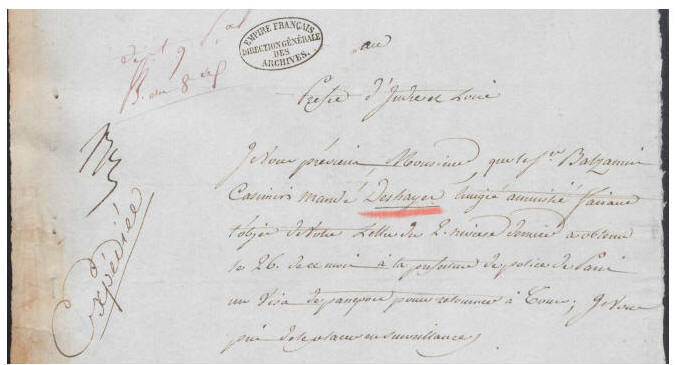 EMPIRE FRANÇAIS
DIRECTION GÉNÉRALE
DES
ARCHIVES.
au
Préfet d'Indre et Loire
Je vous préviens, Monsieur que le Sr Balzamin
Casimir mandé Deshayes émigré amnistié faisant
l'objet de votre Lettre du 2. nivose dernier a obtenu
le 26. de ce mois à la préfecture de police de Paris
un Visa de passeport pour retourner à Tours; Je vous
prie de le placer en surveillance,
Expédiée